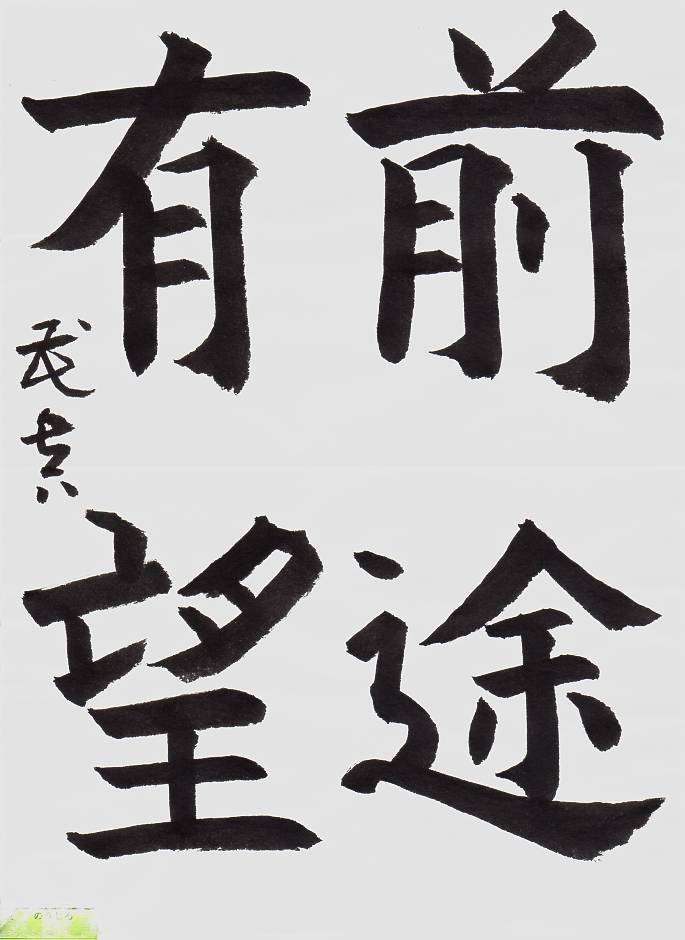 前途
有望
武真